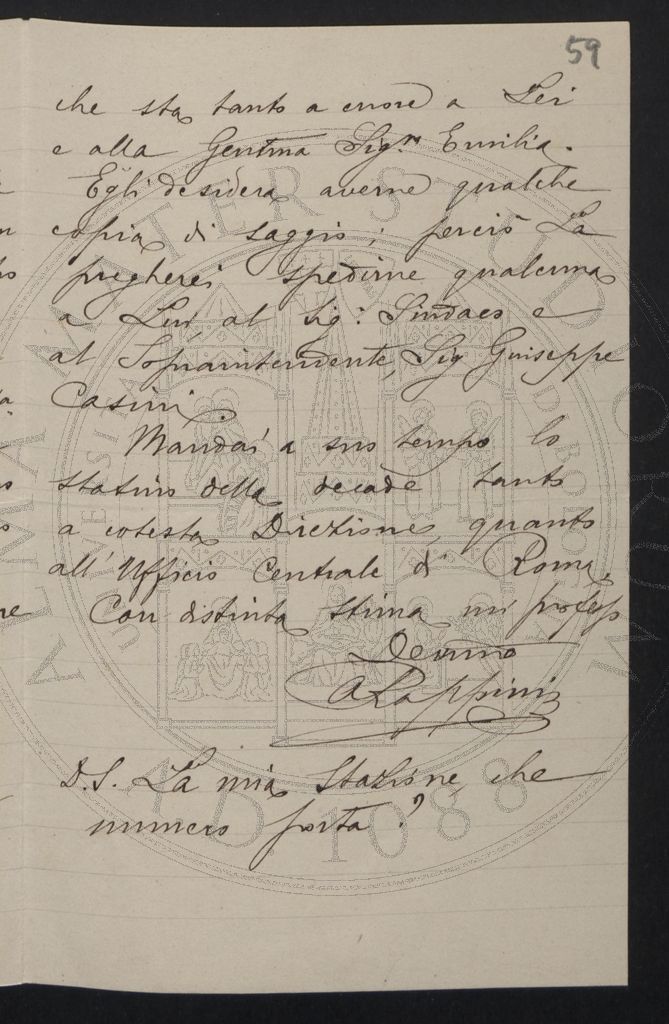 59
che sta tanto a cuore a Lei
e alla Gentma Sigra Emilia.
Egli desidera averne qualche
copia di saggio; perciò La
pregherei spedirne qualcuna
a Lui, al Sig. Sindaco e
al Sopraintendente, Sig Giuseppe
Casini.
Mandai a suo tempo lo
statino della decade tanto
a cotesta Direzione, quanto
all'Ufficio Centrale di Roma.
Con distinta stima mi professo
Devmo
P.S. La mia Stazione, che
numero porta?
ALMA MATER STUDIORUM
A.D. 1088